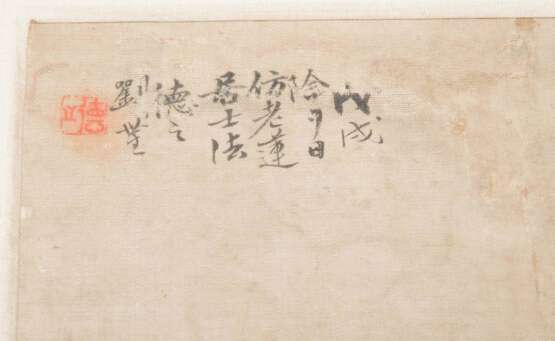 戊戌
月日
仿老蓮
居士法
德之
劉